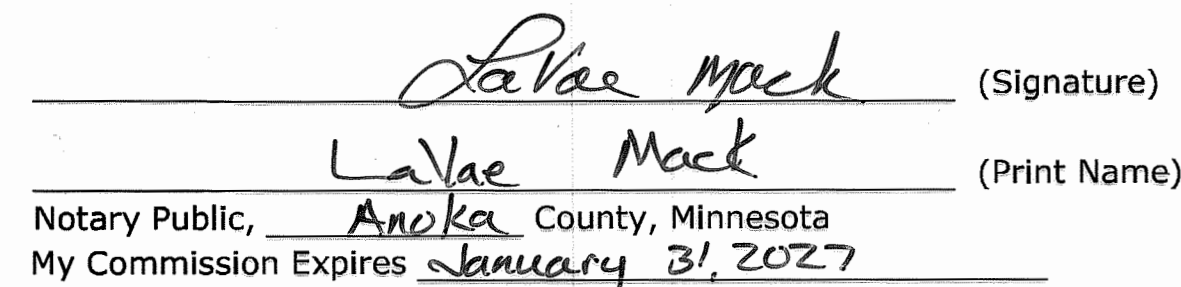 LaVae Mack (Signature)
LaVae Mack (Print Name)
Notary Public, Anoka County, Minnesota
My Commission Expires January 31, 2027